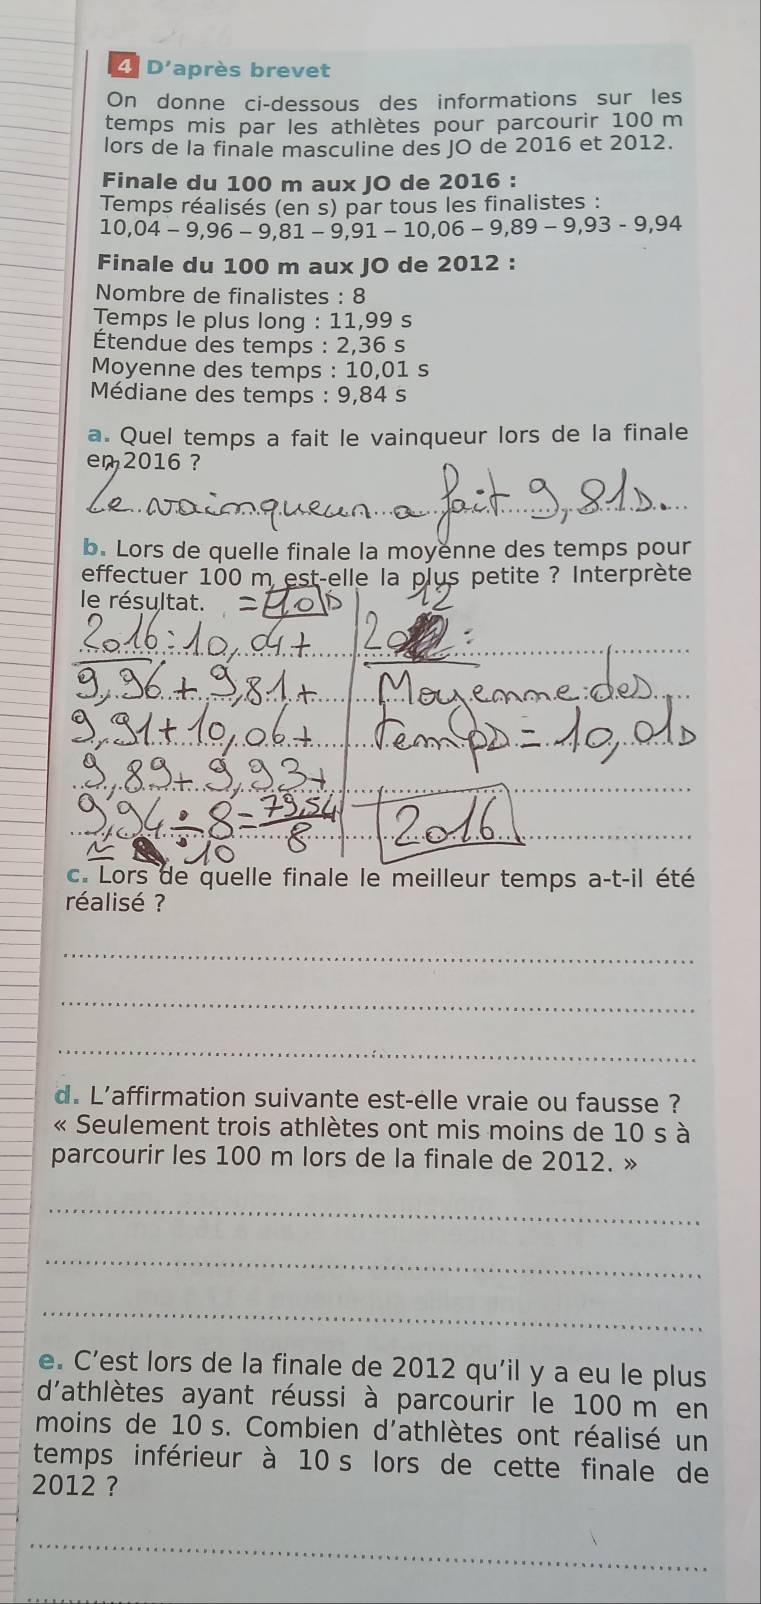 4 D'après brevet
On donne ci-dessous des informations sur les
temps mis par les athlètes pour parcourir 100 m
lors de la finale masculine des JO de 2016 et 2012.
Finale du 100 m aux JO de 2016 :
Temps réalisés (en s) par tous les finalistes :
10,04 – 9,96 – 9,81 – 9,91 – 10,06 – 9,89 – 9,93 - 9,94
Finale du 100 m aux JO de 2012 :
Nombre de finalistes : 8
Temps le plus long : 11,99 s
Étendue des temps : 2,36 s
Moyenne des temps : 10,01 s
Médiane des temps : 9,84 s
a. Quel temps a fait le vainqueur lors de la finale
en 2016 ?
Le vainqueur a fait 9,81s.
b. Lors de quelle finale la moyenne des temps pour
effectuer 100 m est-elle la plus petite ? Interprète
le résultat.
= 10s
2016: 10,04+
9,96 + 9,81+
9,91+10,06+
9,89+ 9,93+
9,94 ÷ 8 = 79,54/8
≈ 10
2012 :
Moyenne des
temps = 10,01s
2016
c. Lors de quelle finale le meilleur temps a-t-il été
réalisé ?
d. L'affirmation suivante est-elle vraie ou fausse ?
« Seulement trois athlètes ont mis moins de 10 s à
parcourir les 100 m lors de la finale de 2012. »
e. C'est lors de la finale de 2012 qu'il y a eu le plus
d'athlètes ayant réussi à parcourir le 100 m en
moins de 10 s. Combien d'athlètes ont réalisé un
temps inférieur à 10 s lors de cette finale de
2012 ?